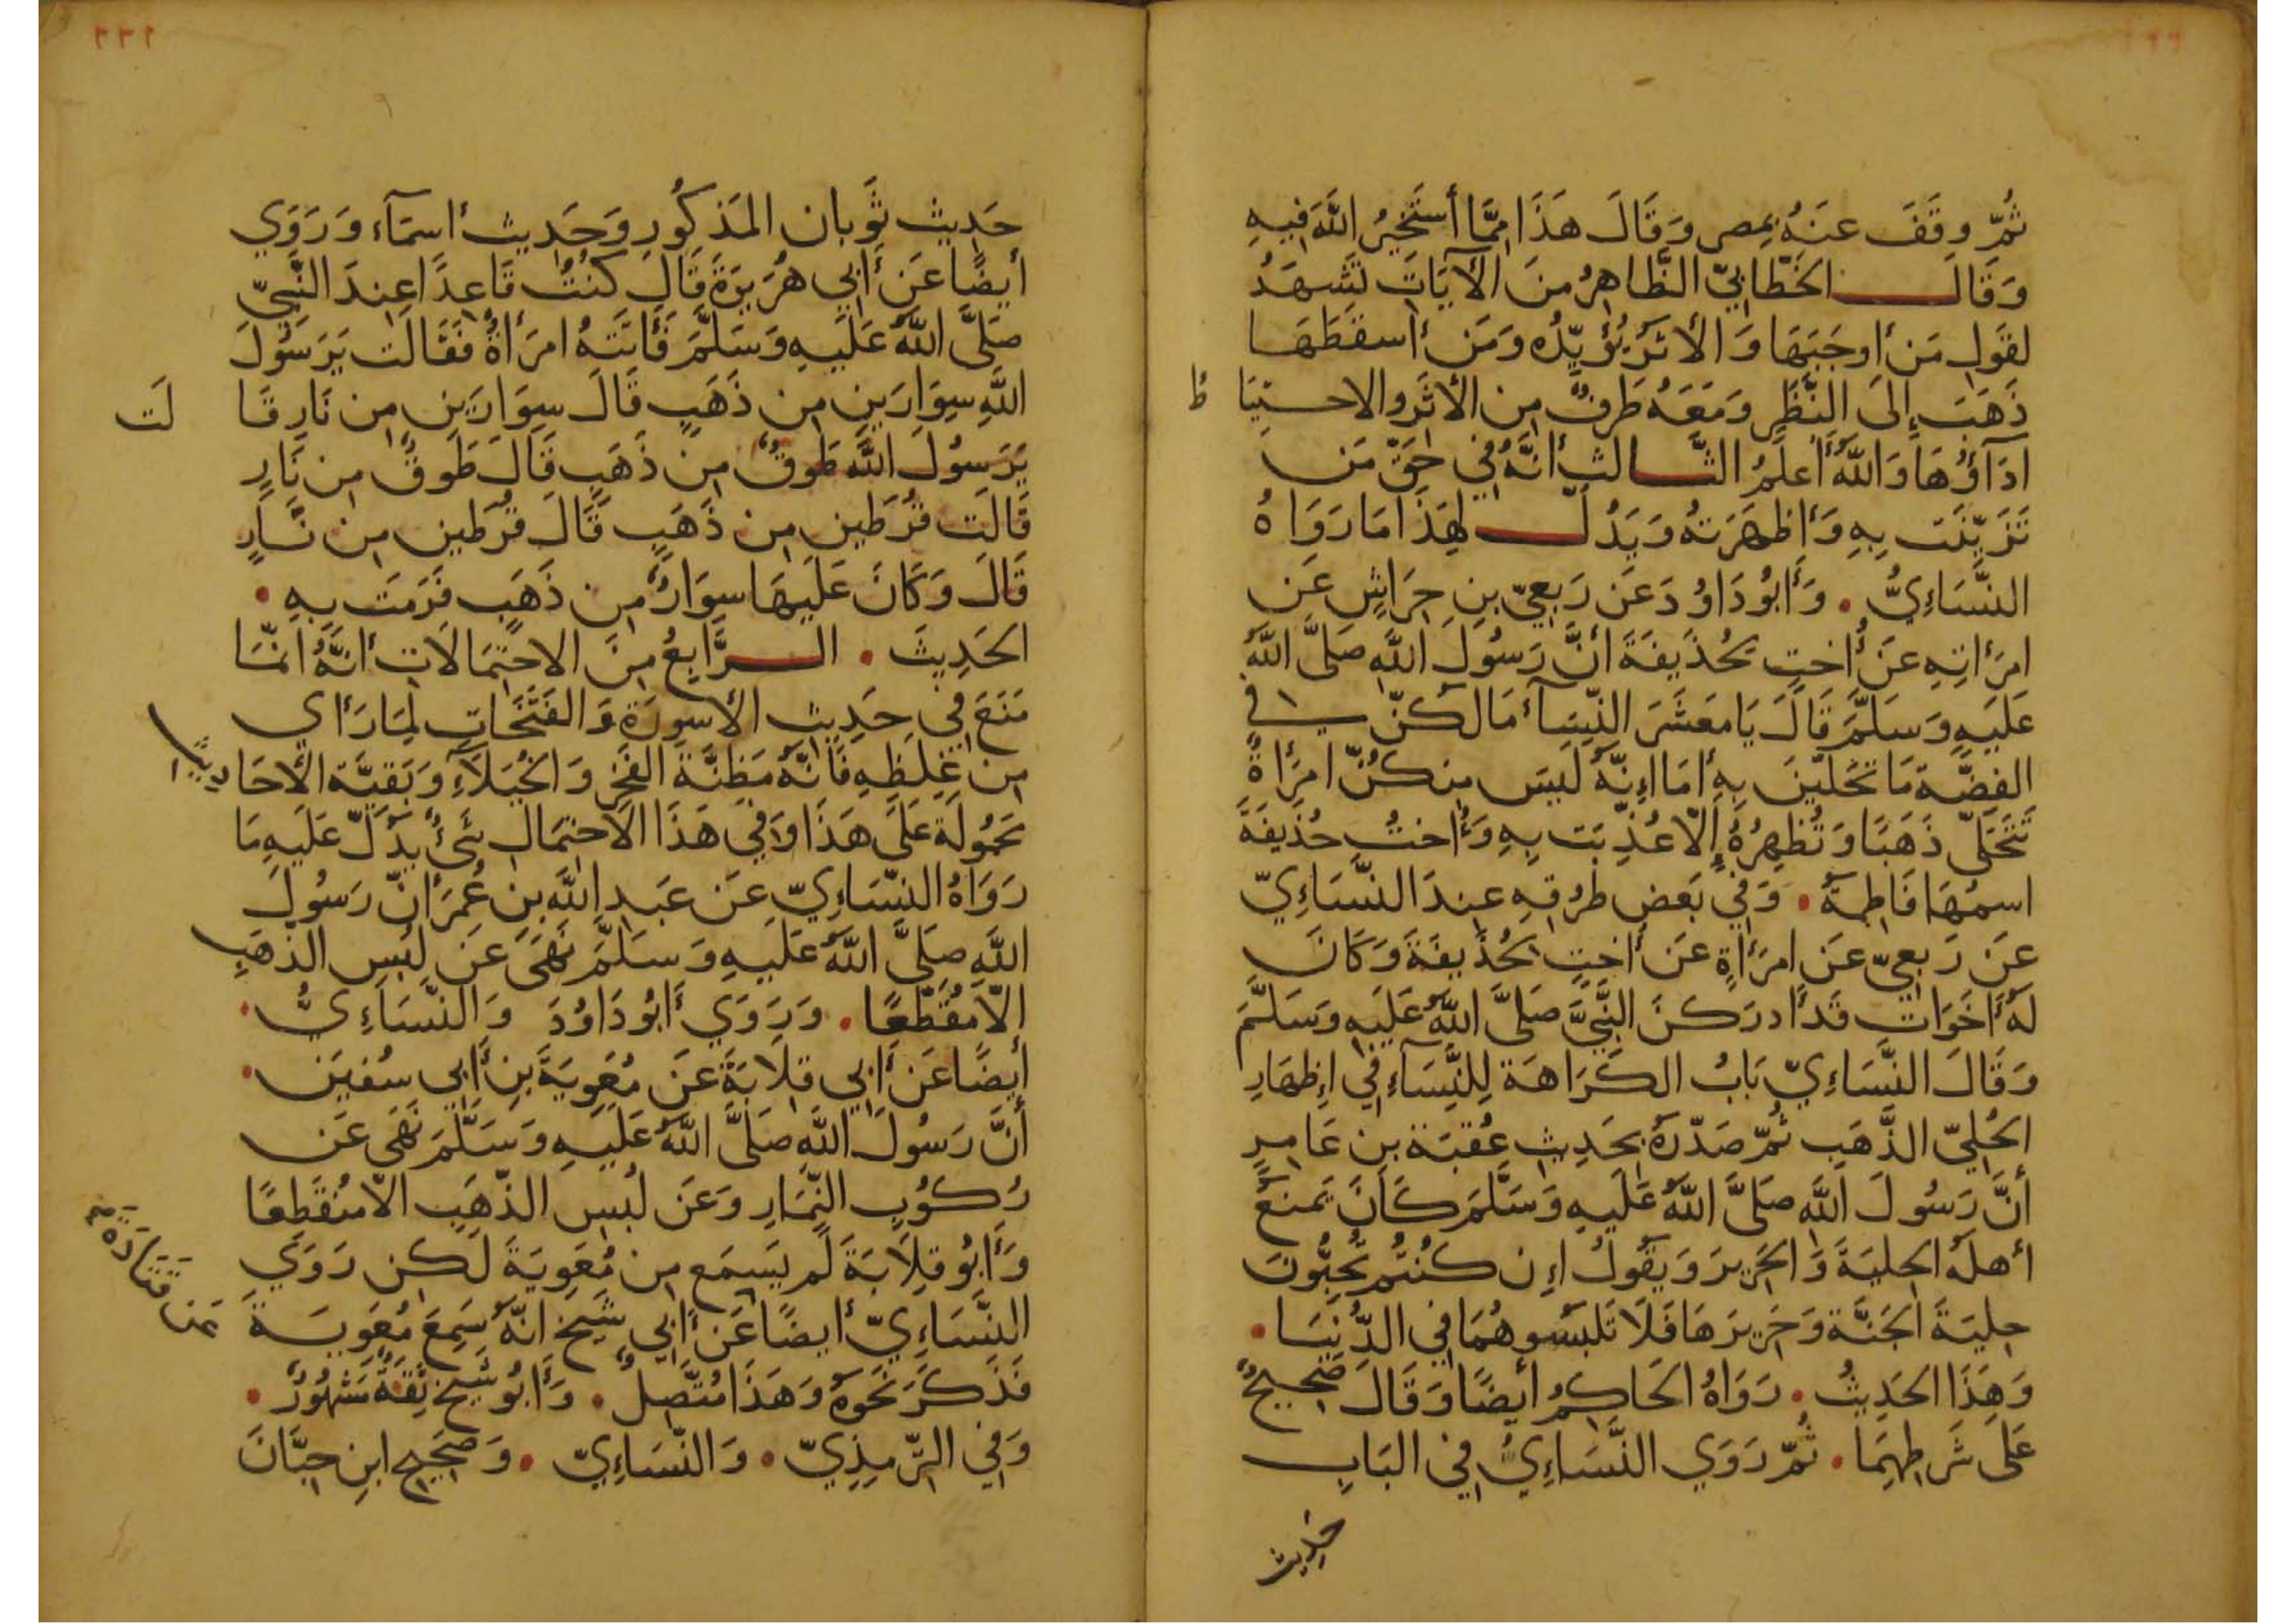 ثُمَّ وقَفَ عنَهُ بمِصر وَقَالَ هَذَا مِمَّا أستَخيُر اللَّهَ فيِهِ
وَقَالَ الخَطابيّ الظَّاهِرُ منَ الآيَاتِ تَشَهَدُ
لقَولِ مَن أوجَبَهَا وَالأثرَ يُؤَيّدُه وَمَن أسقَطَهَا
ذَهَبَ إلىَ النَّظَرِ وَمَعَهُ طَرفٌ من الأثَر والاحتيَاط
ادَآؤُهَا وَاللَّهُ أعلَمُ الثَّالث أنَّهُ في حَقّ مَن
تَزَيّنَت بِهِ وَأظهَرَتهُ وَيَدُلّ لهَذَا مَا رَوَاهُ
النَّسَاءِيُّ . وَأبُو دَاوُدَ عَن رَبعِيّ بنِ حِرَاشٍ عَن
امرَأتِهِ عَن أُختٍ لحُذَيفَةَ أنَّ رَسُولَ اللَّهِ صَلىَّ اللَّهُ
عَلَيهِ وَسَلمَّ قَالَ يَا مَعَشَرَ النِّسَآءِ مَا لَكنّ في
الفِضَّة مَا تحَلَّينَ بهِ أمَا إنَّهُ لَيسَ منكُنّ امرَأةٌ
تَتَحَلىّ ذَهَبًا وَتُظهِرُهُ إلاّ عُذّبَت بِهِ وَأُختُ حُذَيفَةَ
اسمُهَا فَاطِمَةُ . وَفي بَعَضِ طُرُقهِ عِندَ النَّسَاءِيّ
عَن رَبعِيّ عَن امرَأةٍ عَن أختٍ لحُذَيفَةَ وَكَانَ
لَهُ أخَوَات قَد أدرَكنَ النَّبيَّ صَلىَّ اللَّهُ عَلَيهِ وَسَلَّمَ
وَقَالَ النَّسَاءِيّ بَابُ الكَرَاهَة لِلنِّسَآءِ في إظهَارِ
الحُلِيّ الذَّهَبِ ثُمَّ صَدّرَهُ بحَدِيثِ عُقبَة بنِ عَامِرٍ
أنَّ رَسُولَ اللَّهِ صَلىَّ اللَّهُ عَلَيهِ وَسَلَّمَ كَانَ يَمنَعُ
أهلَهُ الحِليَةَ وَالحَرِيرَ وَيَقُولُ إن كُنتُم تُحِبُّونَ
حِليَةَ الجَنَّة وَحَرِيرَهَا فَلَا تَلبَسُوهُمَا في الدُّنيَا .
وَهَذَا الحَدِيثُ . رَوَاهُ الحَاكِمُ أيضًا وَقَالَ صَحِيحٌ
عَلىَ شَرطِهِمَا . ثُمّ رَوَي النَّسَاءِيُّ في البَابِ
حَدِيث
٢٢١
حَدِيث ثَوبان المَذكُورِ وَحَدِيث أسمَآء وَرَوَي
أيضًا عَن أبي هُرَيرَةَ قَالَ كنُتُ قَاعِدًا عِندَ النَّبيّ
صَلىَّ اللَّهُ عَلَيهِ وَسَلَّمَ فَأتَتَهُ امرَأةٌ فَقَالَت يَرَسُولَ
اللَّهِ سِوَارَينِ من ذَهَبٍ قَالَ سِوَارَينِ مِن نَارٍ قَالَت
يَرَسُولَ اللَّه طَوقٌ من ذَهَبٍ قَالَ طَوقٌ من نَارٍ
قَالَت قُرطَينِ من ذَهَبٍ قَالَ قُرطَينِ من نَّارٍ
قَالَ وَكَانَ عَلَيهَا سِوَارٌ من ذَهَبٍ فَرَمَت بِهِ .
الحَدِيثَ . الرَّابِعُ مِنَ الاحتِمَالَات أنَّهُ انمَّا
مَنَعَ في حَدِيثِ الأسورَةِ وَالفَتَخَاتِ لمَا رَأي
من غِلَظِهِ فَانَّهُ مَظِنَّةُ الفَخرِ وَالخُيَلَآءِ وَبَقيَّة الأحَاديث
محَمُولَة عَلىَ هَذَا وَفي هَذَا الاحتِمَالِ شَئٌ يَدُلّ عَلَيهِ مَا
رَوَاهُ النَّسَاءِيّ عَن عَبدِ اللَّهِ بنِ عُمَرَ أنّ رَسُولَ
اللَّهِ صَلىَّ اللَّهُ عَلَيهِ وَسَلَّمَ نَهَىَ عَن لُبسِ الذَّهَبِ
الاّ مُقَطّعًا . وَرَوَي أبُو دَاوُدَ وَالنَّسَاءِيُّ .
أيضًا عَن أبي قلَابَةَ عَن مُعَوِيَةَ بنِ أبي سُفيَن .
أنَّ رَسُولَ اللَّهِ صَلىَّ اللَّهُ عَلَيهِ وَسَلَّمَ نَهَى عَن
رُكُوبِ النِّمَارِ وَعَن لُبسِ الذّهَبِ الاّ مُنقَطِعًا
وَأبُو قلَابَةَ لَم يَسمَع من مُعَوِيَةَ لَكن رَوَي
النَّسَاءِيّ أيضًا عَن قتَادَةَ عَن أبي شَيخ انَّهُ سَمِعَ مُعَوِيَةَ
فَذَكَرَ نَحوَهُ وَهَذَا مُتَّصِلٌ . وَأبُو شَيخ ثِقَةٌ مَشهُورٌ .
وَفي التِّرمِذِيّ . وَالنّسَاءِيّ . وَصَحِيح ابنِ حِبَّانَ